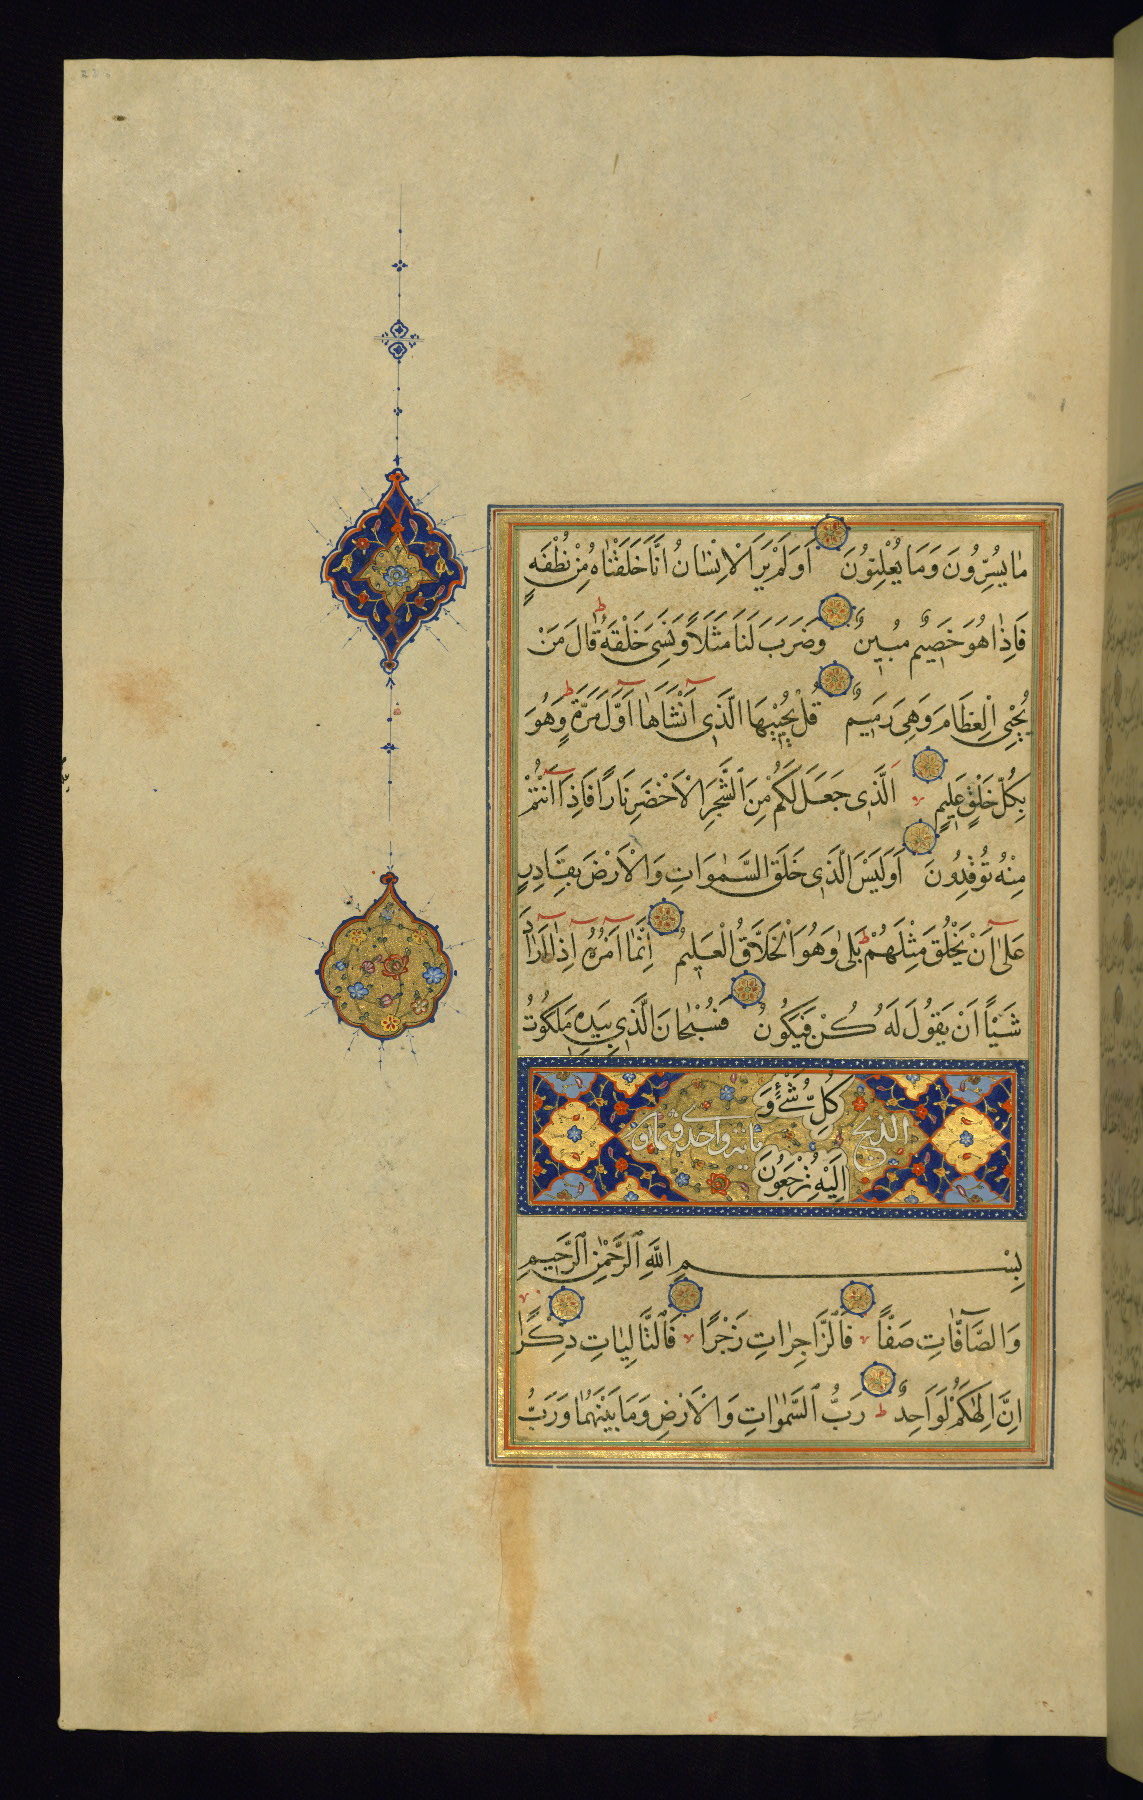 مَا يُسِرُّونَ وَمَا يُعْلِنُونَ اَوَلَمْ يَرَ الْاِنْسَانُ اَنَّا خَلَقْنَاهُ مِنْ نُطْفَةٍ
فَاِذَا هُوَ خَصِيمٌ مُبِينٌ وَضَرَبَ لَنَا مَثَلًا وَنَسِىَ خَلْقَهُ قَالَ مَنْ
يُحْيِى الْعِظَامَ وَهِىَ رَمِيمٌ قُلْ يُحْيِيهَا الَّذِى اَنْشَاَهَا اَوَّلَ مَرَّةٍ وَهُوَ
بِكُلِّ خَلْقٍ عَلِيمٍ اَلَّذِى جَعَلَ لَكُمْ مِنَ الشَّجَرِ الْاَخْضَرِ نَارًا فَاِذَا اَنْتُمْ
مِنْهُ تُوقِدُونَ اَوَلَيْسَ الَّذِى خَلَقَ السَّمٰوَاتِ وَالْاَرْضَ بِقَادِرٍ
عَلٰى اَنْ يَخْلُقَ مِثْلَهُمْ بَلٰى وَهُوَ الْخَلَّاقُ الْعَلِيمُ اِنَّمَا اَمْرُهُ اِذَا اَرَادَ
شَيْئًا اَنْ يَقُولَ لَهُ كُنْ فَيَكُونُ فَسُبْحَانَ الَّذِى بِيَدِهِ مَلَكُوتُ
كُلِّ شَىْءٍ وَ
اِلَيْهِ تُرْجَعُونَ
بِسْمِ اللّٰهِ الرَّحْمٰنِ الرَّحِيمِ
وَالصَّافَّاتِ صَفًّا فَالزَّاجِرَاتِ زَجْرًا فَالتَّالِيَاتِ ذِكْرًا
اِنَّ اِلٰهَكُمْ لَوَاحِدٌ رَبُّ السَّمٰوَاتِ وَالْاَرْضِ وَمَا بَيْنَهُمَا وَرَبُّ